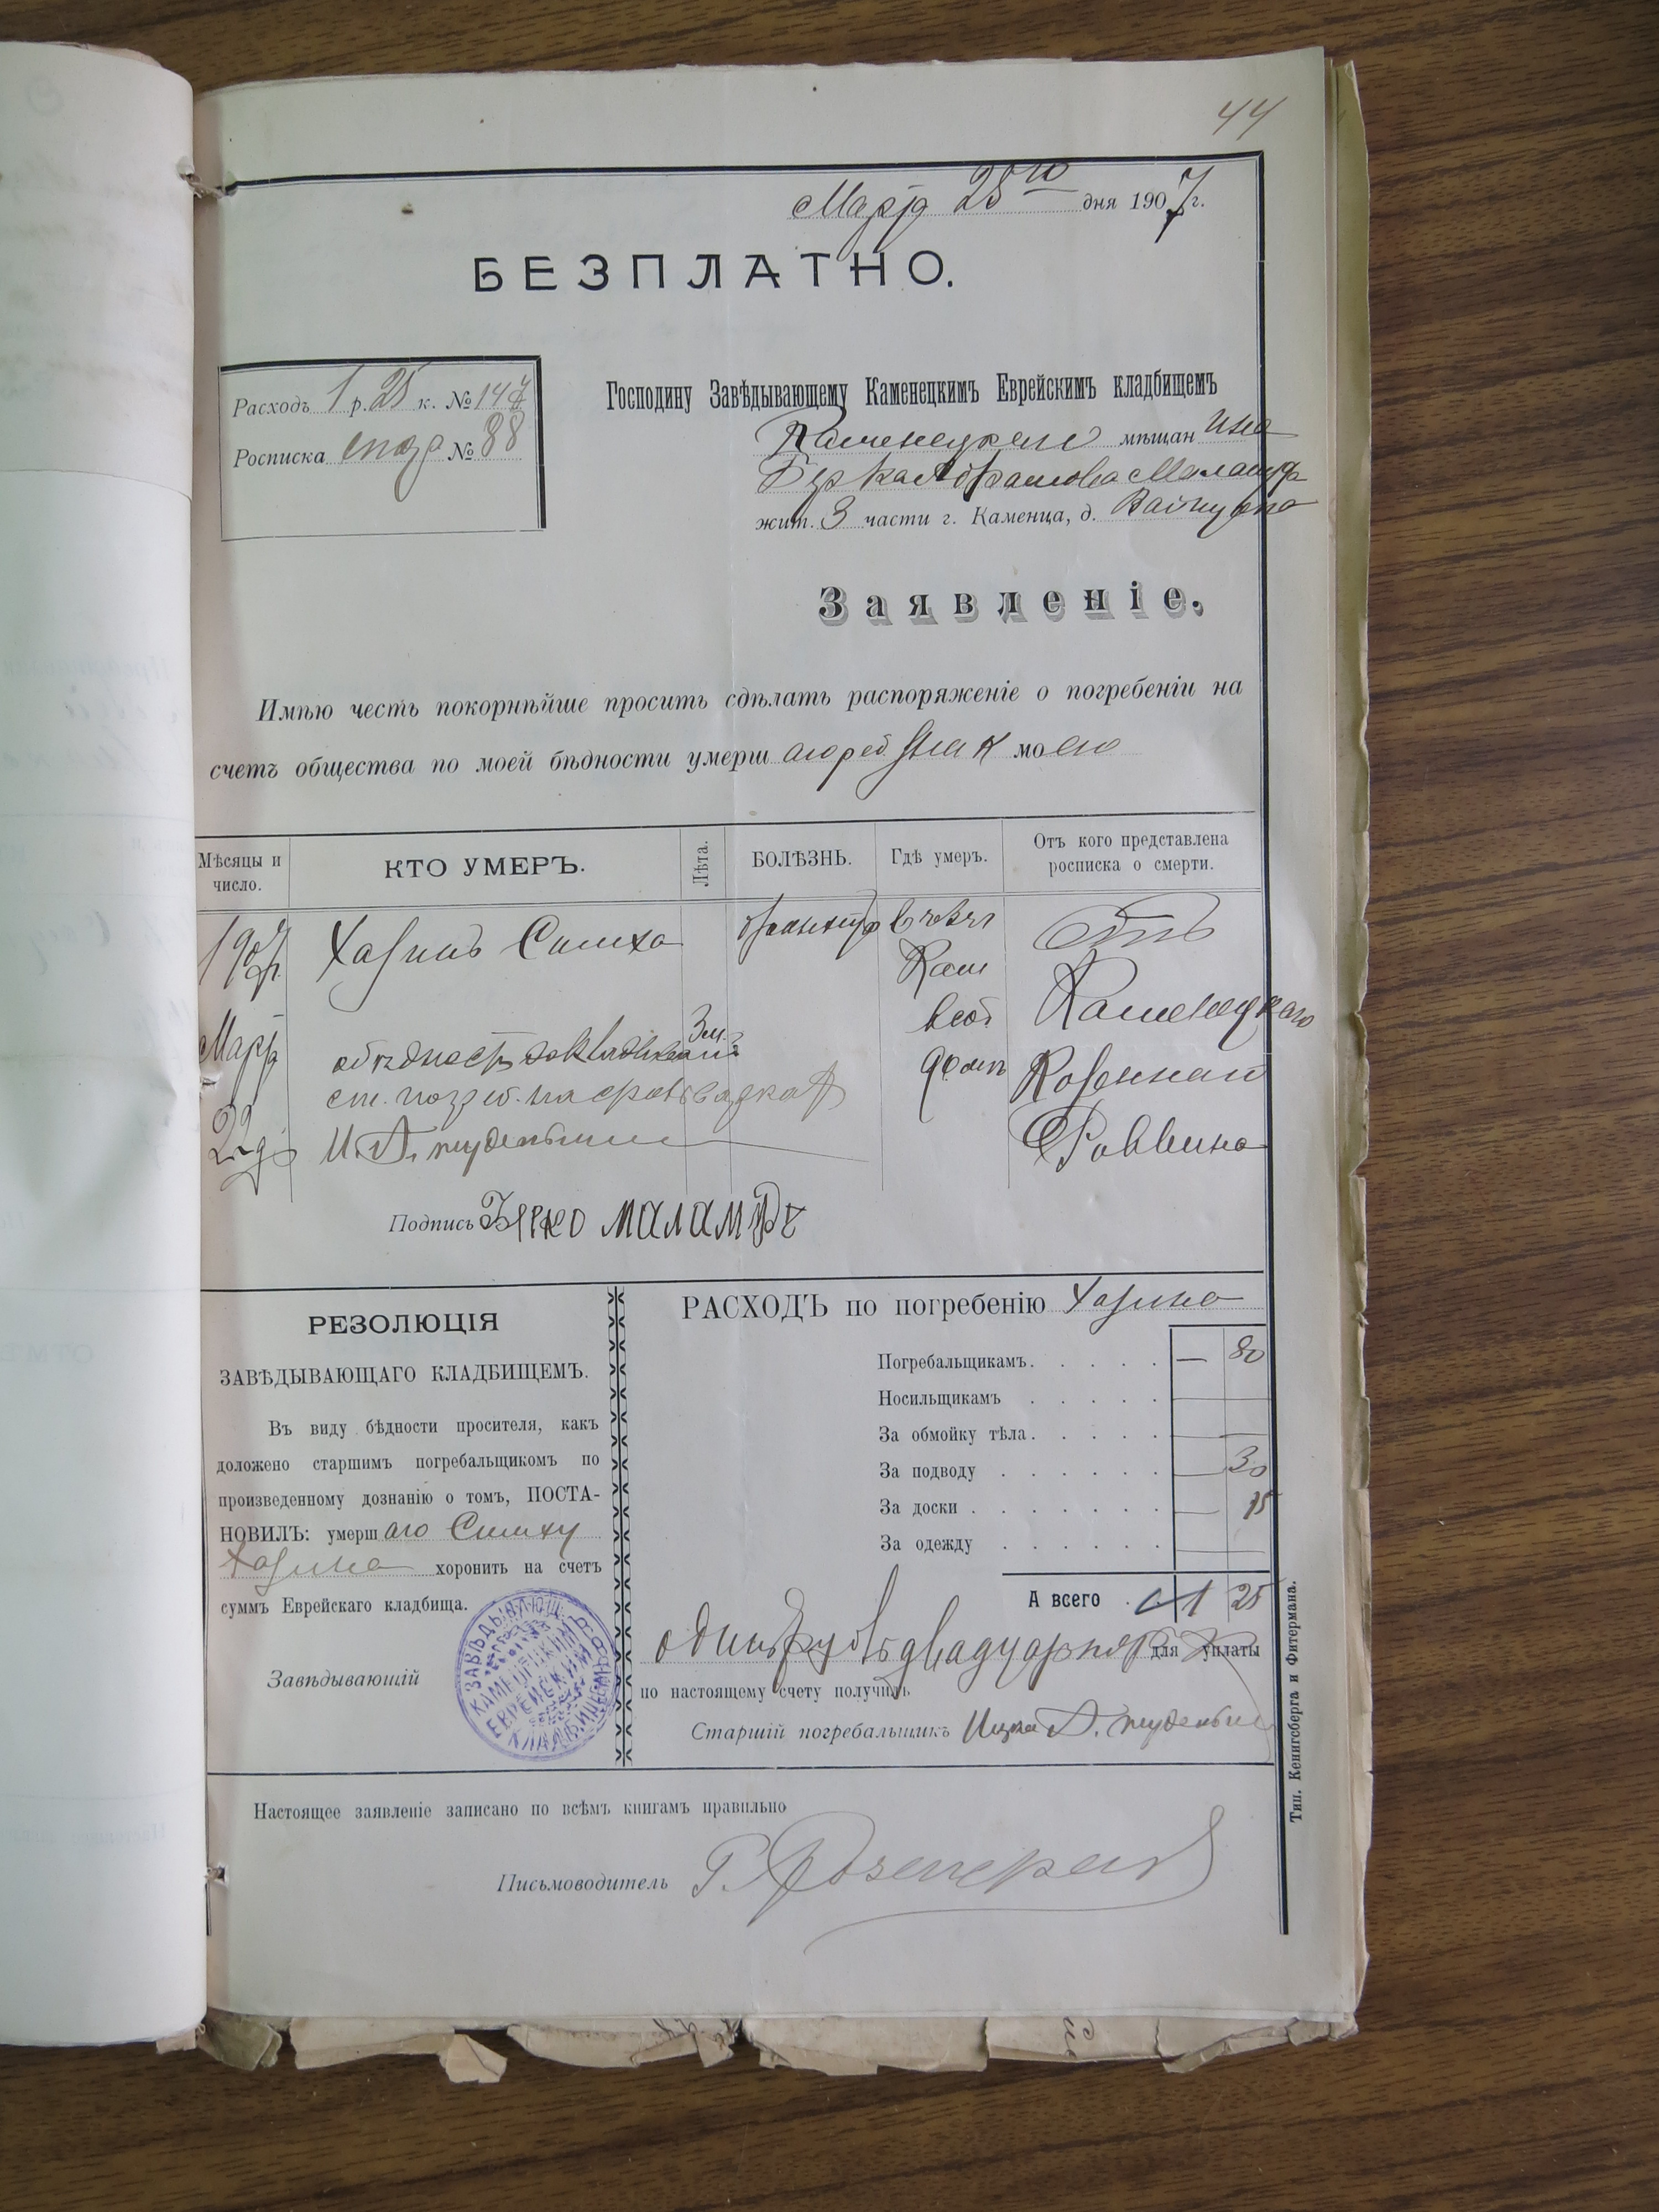 44
Марта 25го дня 1907 г.
БЕЗПЛАТНО.
Расходъ 1 р. 25 к. № 147
Росписка № 88
Господину Завѣдывающему Каменецкимъ Еврейскимъ кладбищемъ
мѣщанина
Берка Абрамова Маламуда
жит. 3 части г. Каменца, д.
Заявленіе.
Имѣю честь покорнѣйше просить сдѣлать распоряженіе о погребеніи на
счетъ общества по моей бѣдности умершаго ребенка моего
Мѣсяцы и число.
КТО УМЕРЪ.
Лѣта.
БОЛѢЗНЬ.
Гдѣ умеръ.
Отъ кого представлена росписка о смерти.
1907 г.
Марта
22 д.
Хазинъ Симха
3 м.
Кам
домѣ
Отъ
Каменецкаго
Казеннаго
Раввина
Подпись Берко маламудъ
РЕЗОЛЮЦІЯ
ЗАВѢДЫВАЮЩАГО КЛАДБИЩЕМЪ.
Въ виду бѣдности просителя, какъ
доложено старшимъ погребальщикомъ по
произведенному дознанію о томъ, ПОСТА-
НОВИЛЪ: умершаго Симху
Хазина хоронить на счетъ
суммъ Еврейскаго кладбища.
Завѣдывающій
ЗАВѢДЫВАЮЩ. КАМЕНЕЦКИМЪ ЕВРЕЙСКИМЪ КЛАДБИЩЕМЪ
РАСХОДЪ по погребенію Хазина
Погребальщикамъ . . . . — 80
Носильщикамъ . . . . .
За обмойку тѣла . . . . .
За подводу . . . . . . — 30
За доски . . . . . . . — 15
За одежду . . . . . .
А всего . 1 25
одинъ рубль двадцать пять к для уплаты
по настоящему счету получилъ
Старшій погребальщикъ
Настоящее заявленіе записано по всѣмъ книгамъ правильно
Письмоводитель
Тип. Кенигсберга и Фитермана.